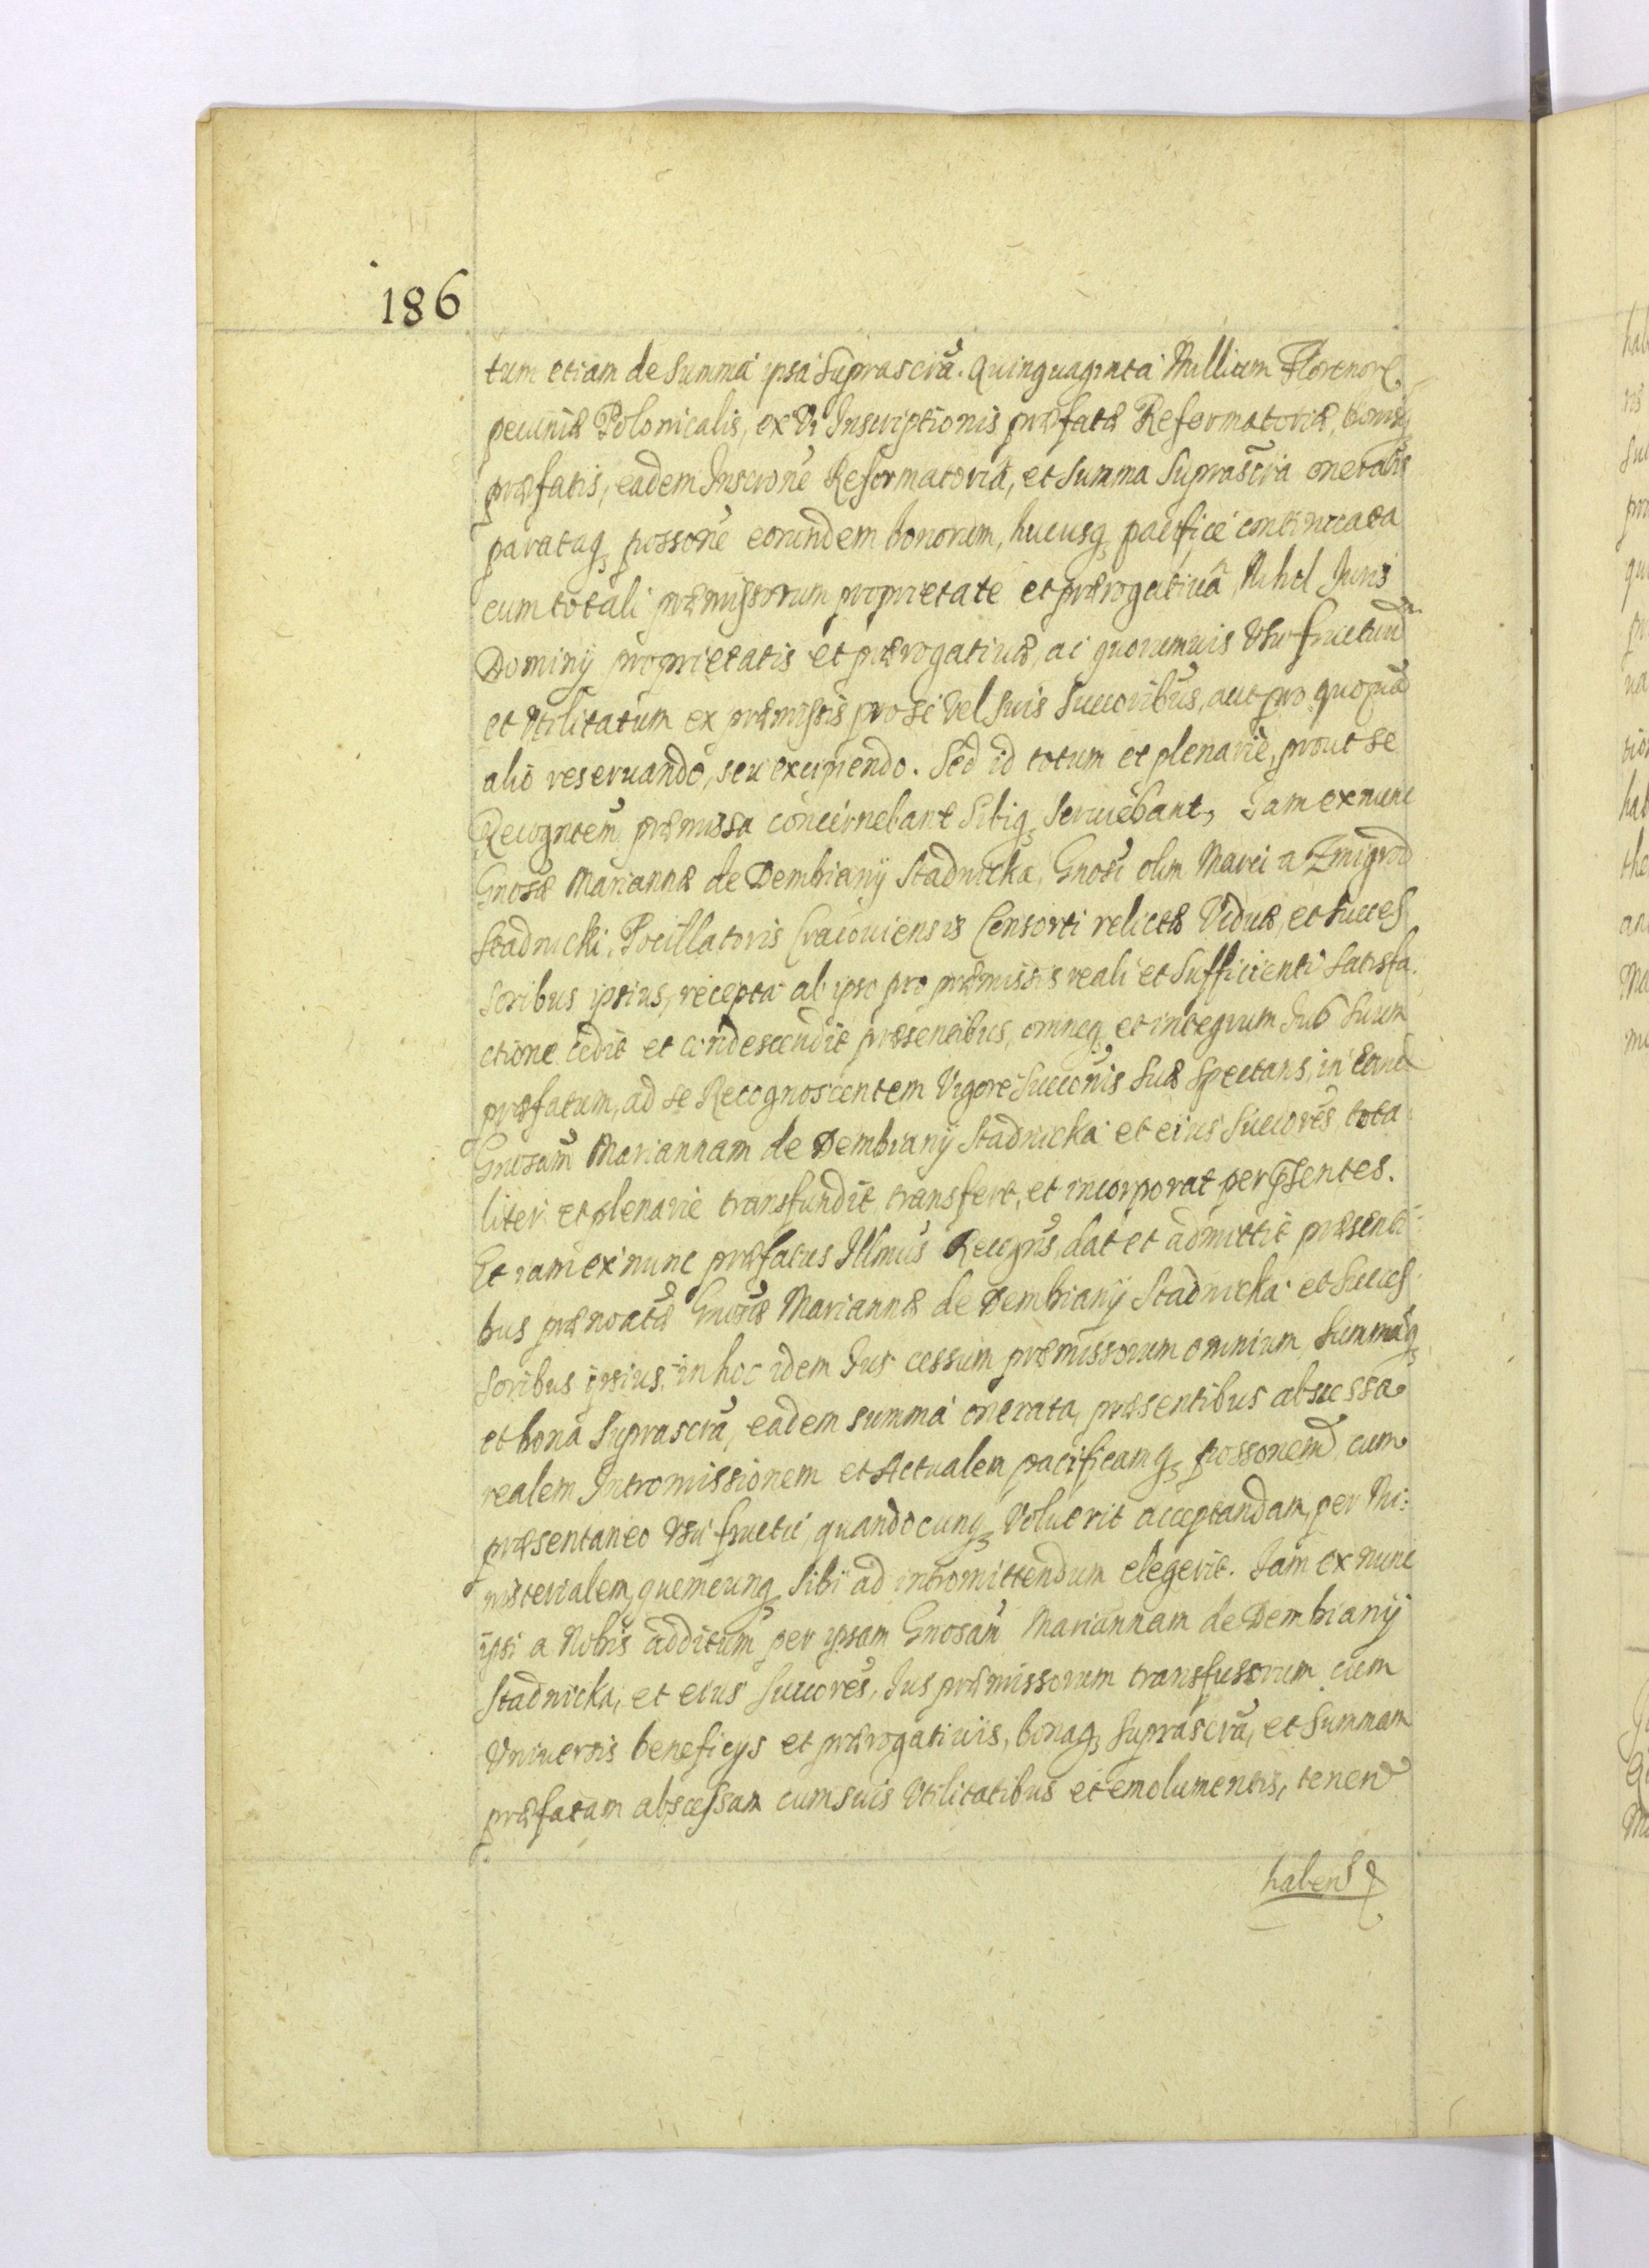 186
tum etiam de Summa ipsa Suprascrã. Quinquaginta Millium Florenor
pecuniæ Polonicalis, ex Vi Inscriptionis præfatæ Reformatoriæ, bonisq
præfatis, eadem Inscrõne Reformatoria, et Summa Suprascrã oneratis
parataq possõne eorundem bonorum, hucusq pacificè continuata
cum totali præmissorum proprietate et prærogatiuâ, Nihil Iuris
Dominij proprietatis et prærogatiuæ, ac quorumuis Usufructuum
et Utilitatum ex præmissis pro se vel suis Succoribus, aut pro quopiã
alio reseruando, seu excipiendo. Sed id totum et plenariè, prout se
Recogntem præmissa concernebant Sibiq Seruiebant, Iam ex nunc
Gnosæ Mariannæ de Dembiany Stadnicka, Gnosi olim Marci a Zmigrod
Stadnicki, Pocillatoris Cracouiensis Consorti relictæ Viduæ, et Succes
Soribus ipsius, recepta ab ipso pro præmissis reali et Sufficienti Satisfa
ctione cedit et condescendit præsentibus, omneq et integrum Ius Suum
præfatum, ad se Recognoscentem Vigore Succonis Suæ Spectans, in Eand
Gnosam Mariannam de Dembiany Stadnicka et eius Succores tota
liter et plenarie transfundit, transfert, et incorporat per præsentes.
Et iam ex nunc præfatus Illmus Recogns, dat et admittit præsenti
bus prænoatæ Gnosæ Mariannæ de Dembiany Stadnicka et Succes
Soribus ipsius, in hoc idem Ius cessum præmissorum omnium, Summaq
et bona Suprascrã, eadem summa onerata, præsentibus abscessa
realem Intromissionem et Actualem pacificamq possonem, cum
præsentaneo Usu fructu, quandocunq Voluerit acceptandam, per Mi:
nisterialem, quemcunq Sibi ad intromittendum elegerit. Iam ex nunc
ipsi a Nobis additum per ipsam Gnosam Mariannam de Dembiany
Stadnicka, et eius Succores, Ius præmissorum transfusorum cum
Vniuersis beneficys et prærogatiuis, bonaq Suprascrã, et Summam
præfatam abscessam cum suis Utilitatibus et emolumentis, tenend
habend